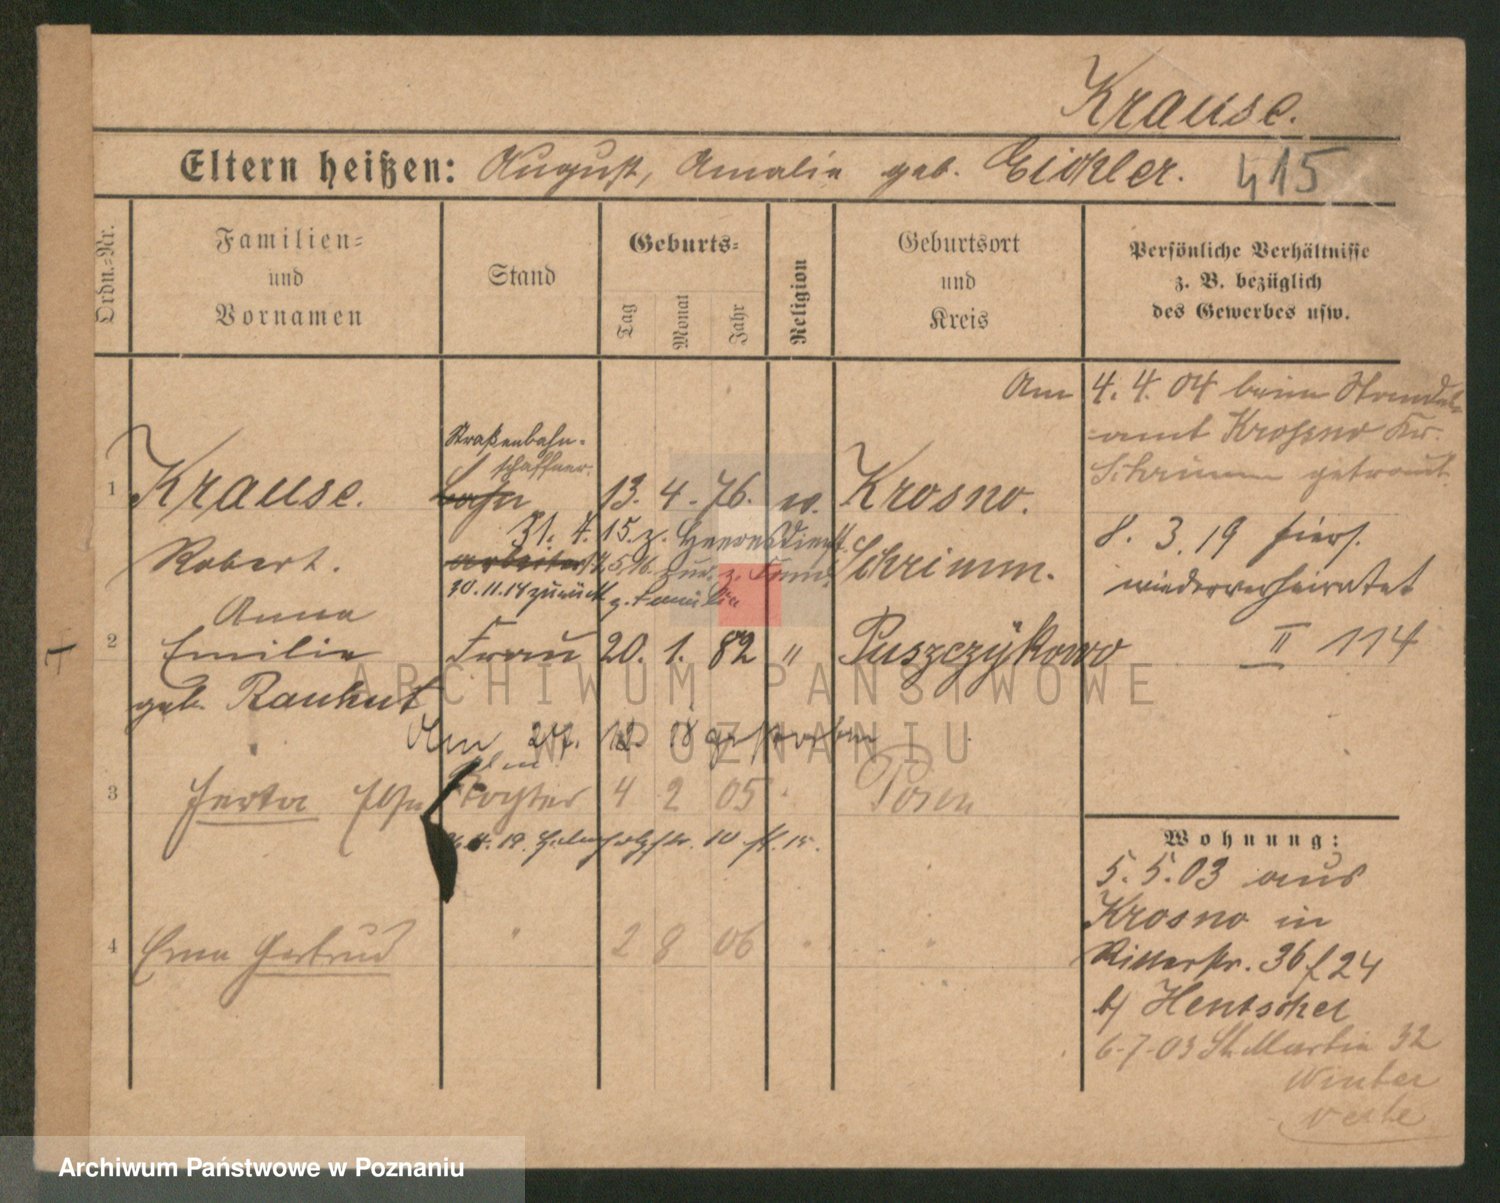 Krause.
Eltern heißen: August, Amalie geb. Eichler. 415
Ordn.-Nr.
Familien-
und
Vornamen
Stand
Geburts-
Tag
Monat
Jahr
Religion
Geburtsort
und
Kreis
Persönliche Verhältnisse
z. B. bezüglich
des Gewerbes usw.
Am 4. 4. 04 beim Standes-
amt Krossno Kr.
Schrimm getraut.
Straßenbahn-
schaffner.
1 Krause. 13. 4. 76. Krosno.
31. 7. 15. z. Heeresdienst
8. 3. 19
wiederverheiratet
Robert. arbeiter Schrimm.
30. 11. 14 zurück z. Familie
II 114
Anna
2 Emilie Frau 20. 1. 82 " Puszczykowo
geb. Rauhut
Am 27. 12. 18 gestorben
3 Herta Tochter 4 2 05 Posen
4 Erna Gertrud " 2 8 06 " "
Wohnung:
5. 5. 03 aus
Krosno in
Ritterstr. 36 f 24
b/ Hentschel
6-7-03 St. Martin 32
Winter
ARCHIWUM PAŃSTWOWE
W POZNANIU
Archiwum Państwowe w Poznaniu